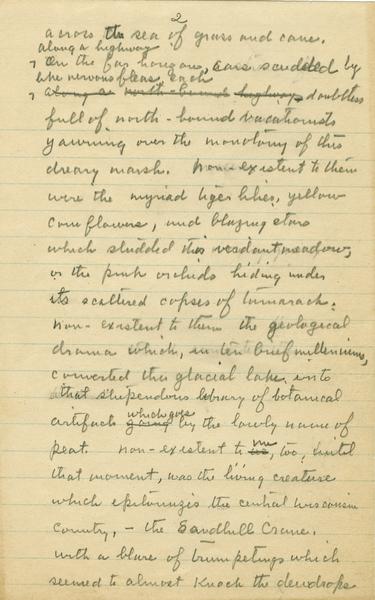 2
across the sea of grass and cane.
along a highway
On the far horizon, cars scudded by
like nervous fleas, each
along a north-bound highway, doubtless
full of north-bound vacationists
yawning over the monotony of this
dreary marsh. Non-existent to them
were the myriad tiger lilies, yellow
cone flowers, and blazing stars
which studded this verdant meadow,
or the pink orchids hiding under
its scattered copses of tamarack.
Non-existent to them the geological
drama which, in ten brief millenniums,
converted this glacial lake into
that stupendous library of botanical
which goes
artifacts going by the lowly name of
me
peat. Non-existent to us, too, until
that moment, was the living creature
which epitomizes the central Wisconsin
country, - the Sandhill Crane.
With a blare of trumpetings which
seemed to almost knock the dewdrops